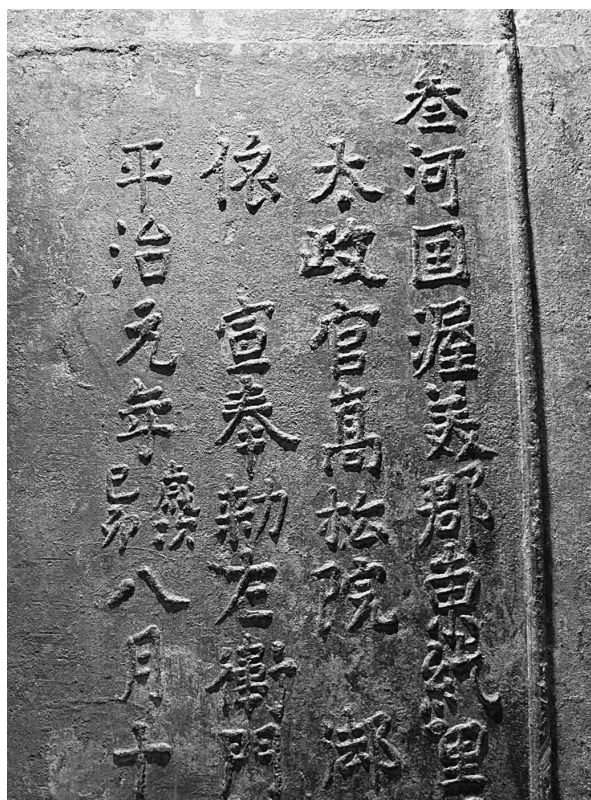 叁河国渥美郡東里
太政官高松院 御
依 宣奉勅左衛門
平治元年歳次己卯八月十